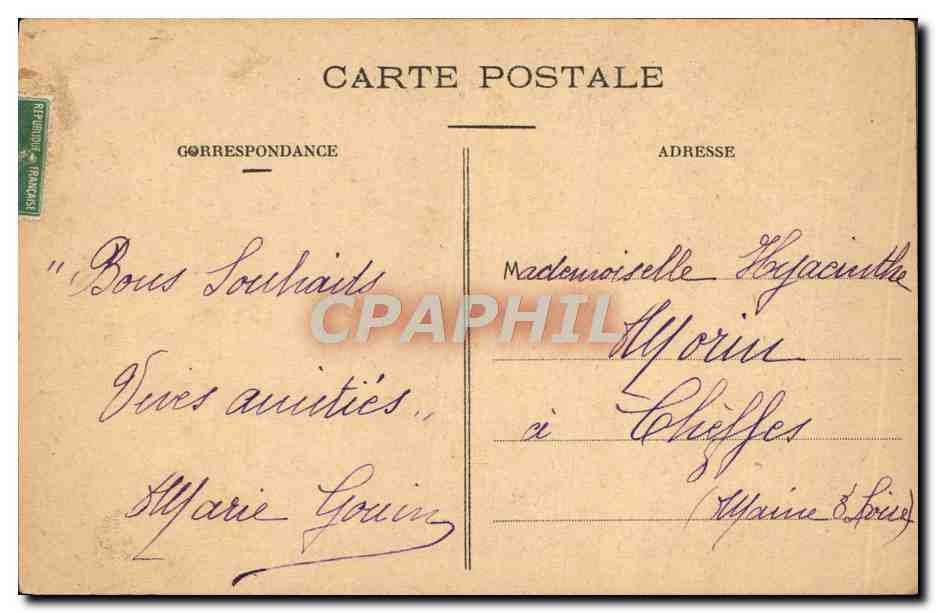 CARTE POSTALE
CORRESPONDANCE
ADRESSE
RÉPUBLIQUE FRANÇAISE
" Bons Souhaits
Vives amitiés "
Marie Gouin
Mademoiselle Hyacinthe
Morin
à Chèffes
(Maine & Loire)
CPAPHIL